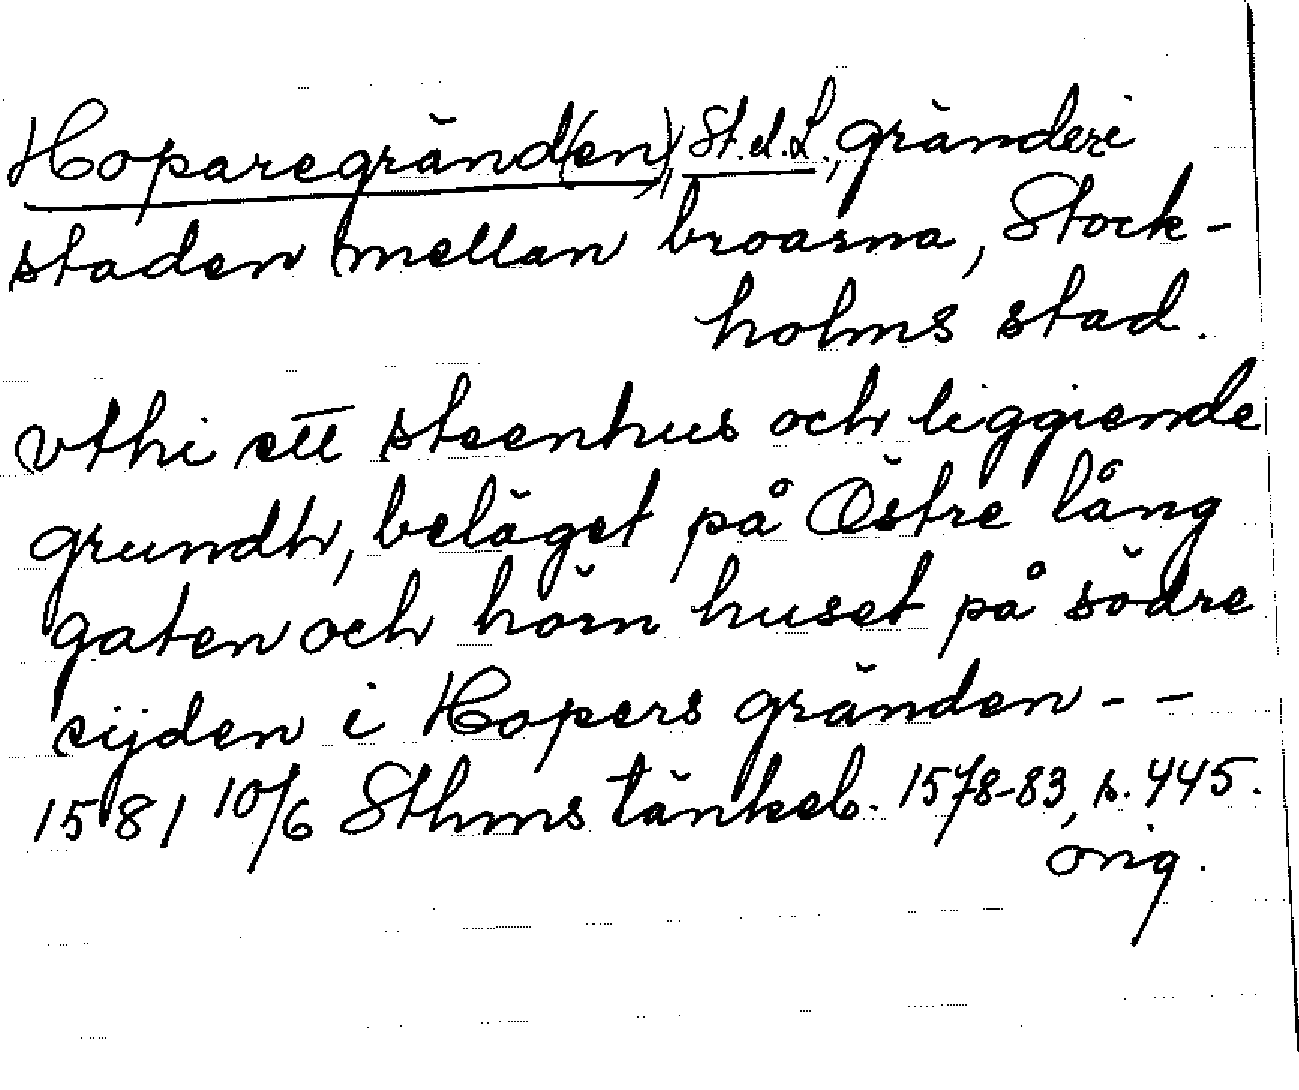 Hoparegränd(en), St. o. L., gränder i
staden mellan broarna, Stock-
holms stad.
vthi ett steenhus och liggiende
grundh, beläget på Östre lång
gaten och hörn huset på södre
sijden i Hopers gränden - -
1581 10/6 Sthms tänkeb. 1578-83, s. 445.
orig.